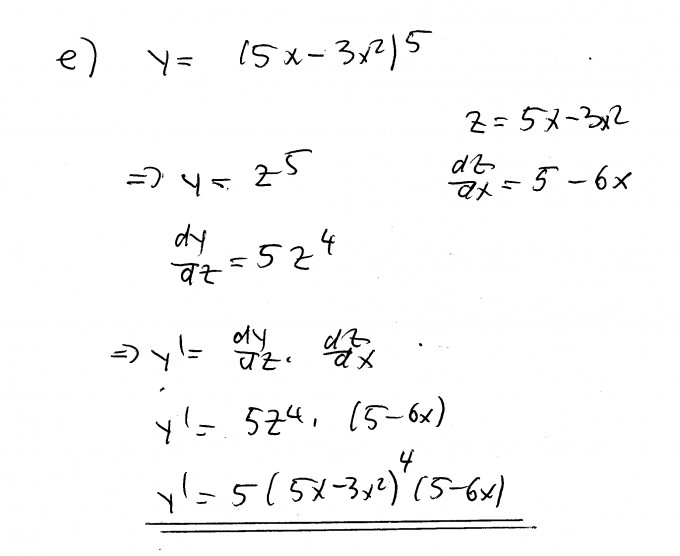 e) y = (5x - 3x²)⁵
z = 5x - 3x²
=> y = z⁵
dz/dx = 5 - 6x
dy/dz = 5z⁴
=> y' = dy/dz · dz/dx
y' = 5z⁴ · (5-6x)
y' = 5(5x-3x²)⁴(5-6x)